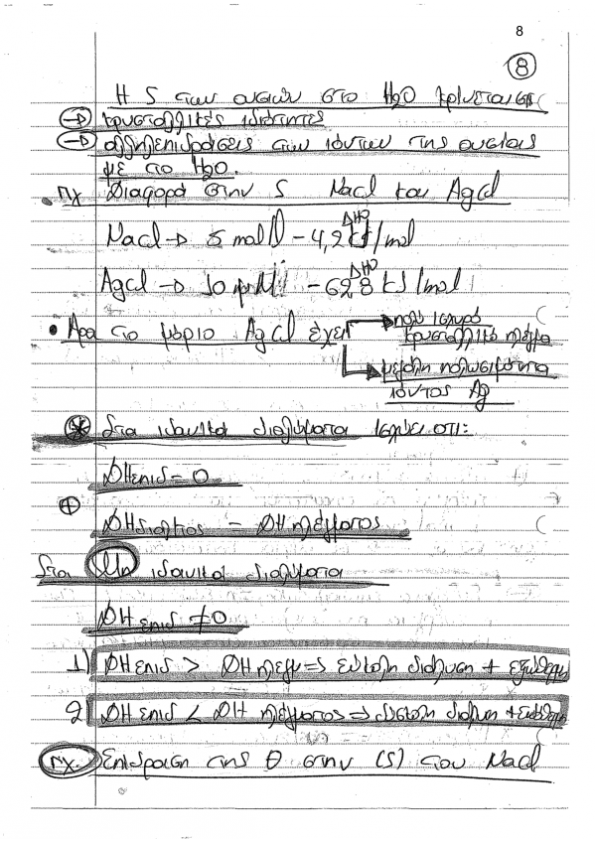 8
8
Η S των ουσιών στο H2O κρίνεται σε
→ κρυσταλλικές ιδιότητες
→ αλληλεπιδράσεις των ιόντων της ουσίας
με το H2O.
• πχ Διαφορά στην S NaCl και AgCl
ΔΗΘ
NaCl → 5 mol/l - 4,2 kJ/mol
ΔΗΘ
AgCl → 10 μM - 62,8 kJ/mol
• Άρα το μόριο AgCl έχει πολύ ισχυρό
κρυσταλλικό πλέγμα
μεγάλη πολωσιμότητα
ιόντος Ag
* Στα ιδανικά διαλύματα ισχύει οτι:
ΔΗεπιδ = 0
+
ΔΗδιαλ/τος = ΔΗπλέγματος
Στα Μη ιδανικά διαλύματα
ΔΗ επιδ ≠ 0
1) ΔΗεπιδ > ΔΗπλεγμ ⇒ εύκολη διάλυση + εξώθερμη
2) ΔΗεπιδ < ΔΗ πλέγματος ⇒ δύσκολη διάλυση + ενδόθερμη
πχ. Επίδραση της θ στην (S) του NaCl